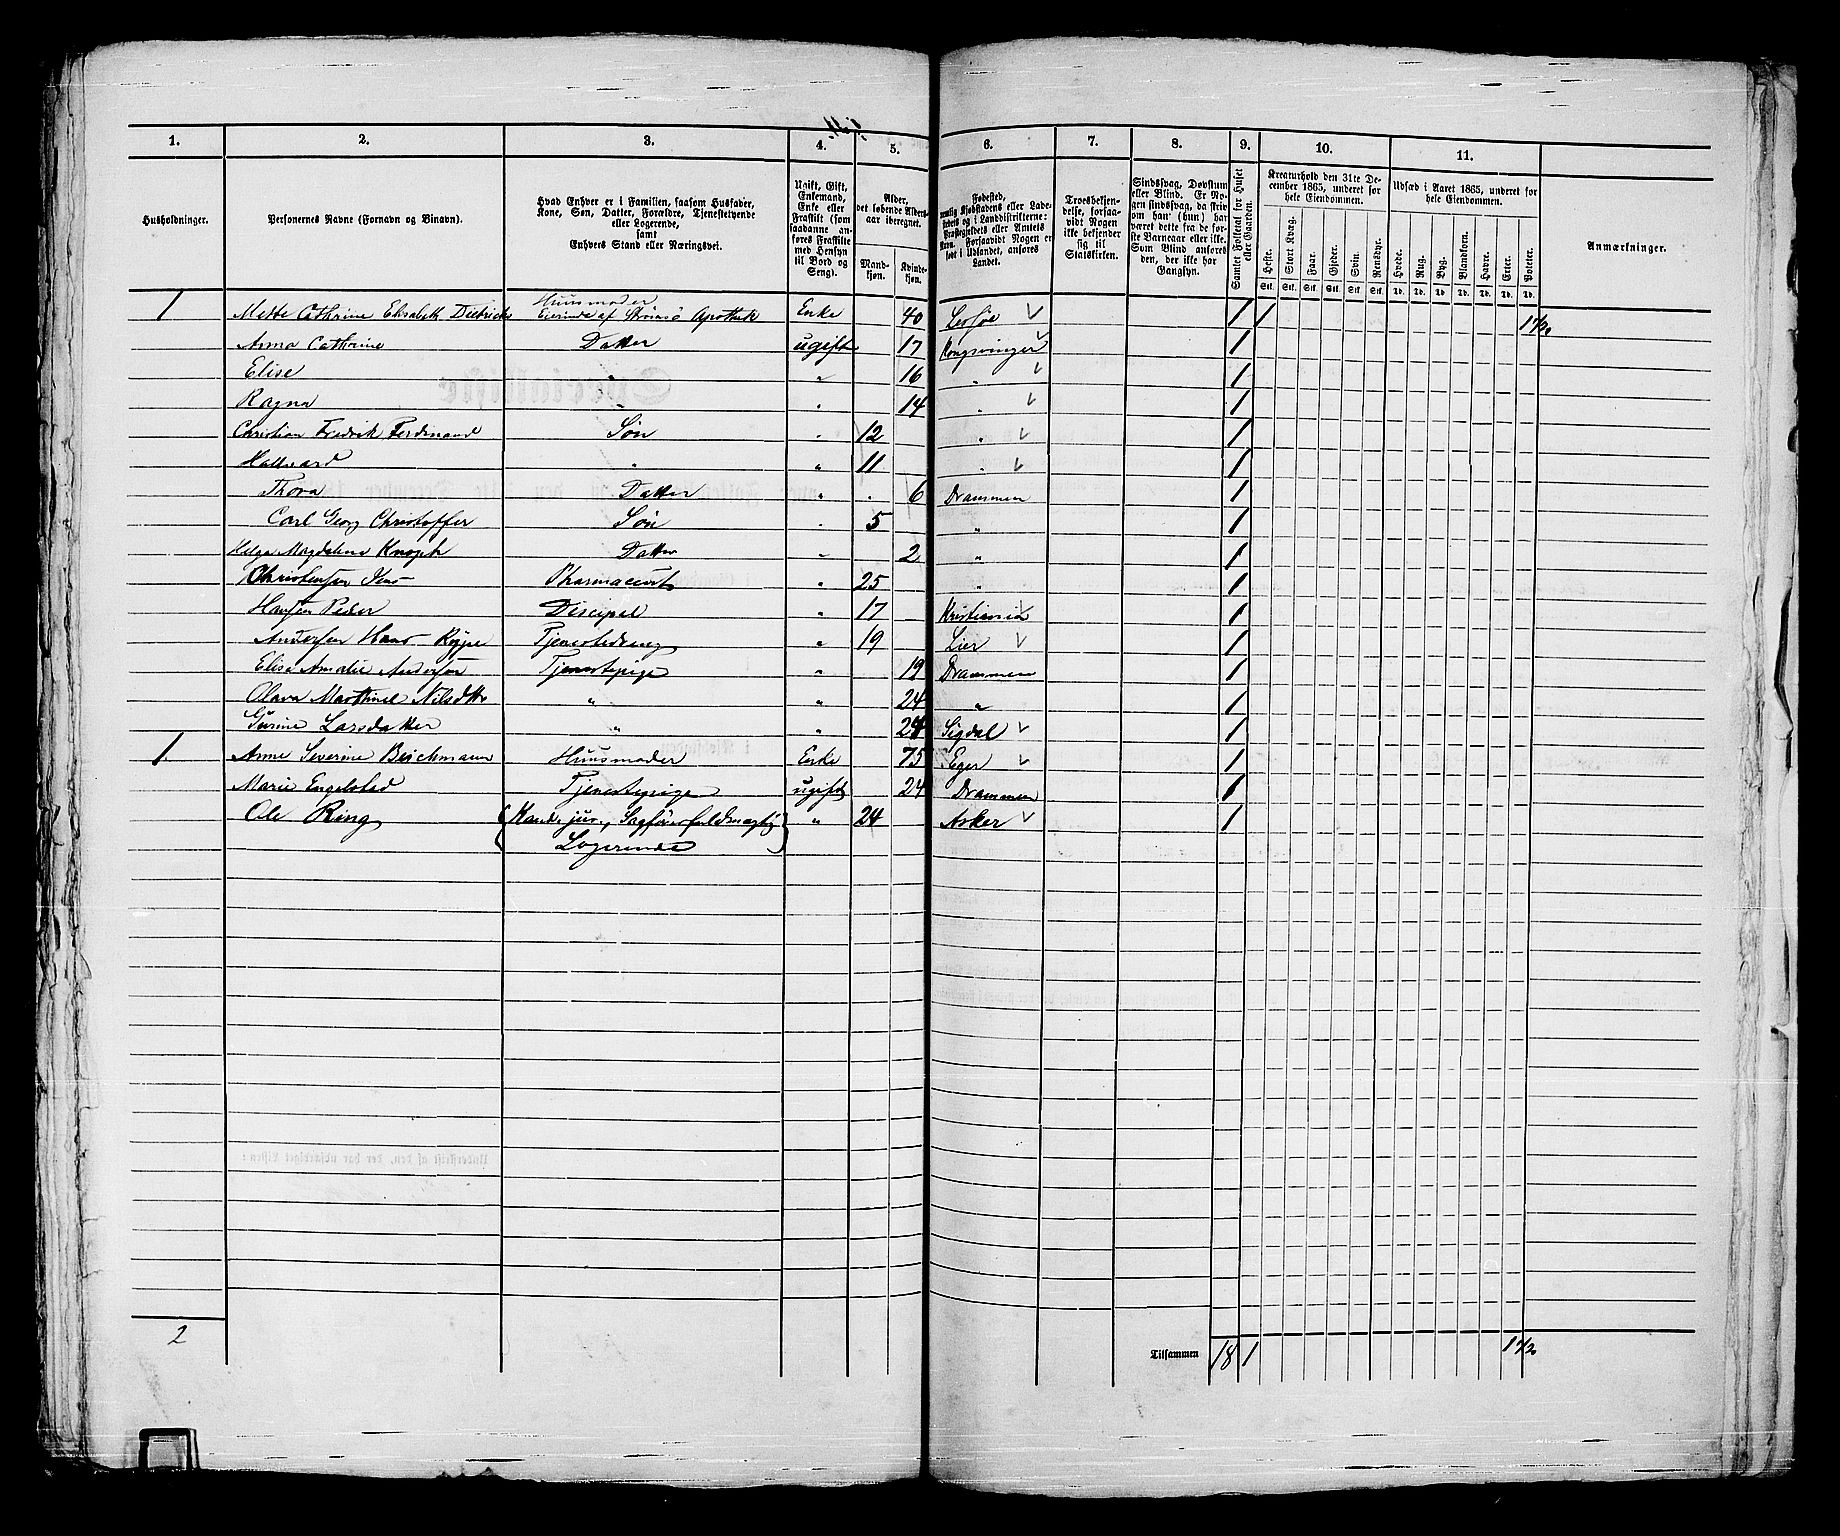 1. 2. 3. 4. 5. 6. 7. 8. 9. 10. 11.
Husholdninger.
Personernes Navne (Fornavn og Binavn).
Hvad Enhver er i Familien, saasom Husfader,
Kone, Søn, Datter, Forældre, Tjenestetyende
eller Logerende,
samt
Enhvers Stand eller Næringsvei.
Ugift, Gift,
Enkemand,
Enke eller
Fraskilt (som
saadanne an-
føres Fraskilte
med Hensyn
til Bord og
Seng).
Alder,
det løbende Alders-
aar iberegnet.
Mand-
kjøn.
Kvinde-
kjøn.
Fødested,
nemlig Kjøbstadens eller Lade-
stedets og i Landdistrikterne:
Præstegjeldets eller Amtets
Navn. Forsaavidt Nogen er
født i Udlandet, anføres
Landet.
Troesbekjen-
delse, forsaa-
vidt Nogen
ikke bekjender
sig til
Statskirken.
Sindssvag, Døvstum
eller Blind. Er No-
gen sindssvag, da skriv
om han (hun) har
været dette fra de før-
ste Barneaar eller ikke.
Som Blind anføres
den, der ikke har
Gangsyn.
Samlet Folketal for Huset
eller Gaarden.
Kreaturhold den 31te De-
cember 1865, underet for
hele Eiendommen.
Heste. Stort Kvæg. Faar. Gjeder. Svin. Rensdyr.
Stk. Stk. Stk. Stk. Stk. Stk.
Udsæd i Aaret 1865, underet for
hele Eiendommen.
Hvede. Rug. Byg. Blandkorn. Havre. Erter. Poteter.
Td. Td. Td. Td. Td. Td. Td.
Anmærkninger.
Huusmoder
1 Mette Cathrine Elisabeth Dietrichs Eierinde af Strømsö Apothek Enke 40 1 1 1 1/2
Anna Cathrine Datter ugift 17 Kongsvinger 1
Elise " " 16 " 1
Ragna " " 14 " 1
Christian Fredrik Ferdinand Søn " 12 " 1
Hallvard " " 11 " 1
Thora Datter " " 6 Drammen 1
Carl Georg Christoffer Søn " 5 " 1
Helga Magdalena Knoph Datter " 2 " 1
Christensen Jens Pharmaceut " 25 " 1
Hansen Peder Discipel " 17 Kristiania 1
Andersen Hans Tjenestedreng " 19 Lier 1
Elise Amalie Andersen Tjenestepige " 19 Drammen 1
Olava Marthine Nilsdtr " " 24 " 1
Gurine Larsdatter " " 24 Sigdal 1
1. Anne Severine Beichmann Huusmoder Enke 75 Eger 1
Marie Engelstad Tjenestepige ugift 24 Drammen 1
Ole Ring Kand. jur., Sagførerfuldmægtig " 24 Asker 1
Logerende
2 Tilsammen 18 1 1 1/2